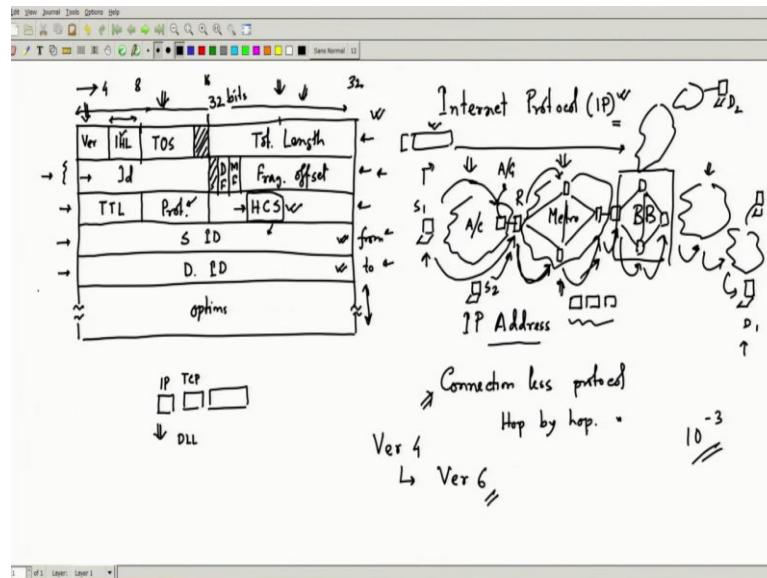 Edit View Journal Tools Options Help
Sans Normal 12
4 8 16 32
32 bits
Ver IHL TOS Tot. Length
Id DF MF Frag. offset
TTL Prot. HCS
S ID from
D. ID to
options
IP TCP
DLL
Internet Protocol (IP)
A/G
S1 A/C R Metro BB D2
S2 D1
IP Address
Connection less protocol
Hop by hop.
10-3
Ver 4
Ver 6
1 of 1 Layer: Layer 1